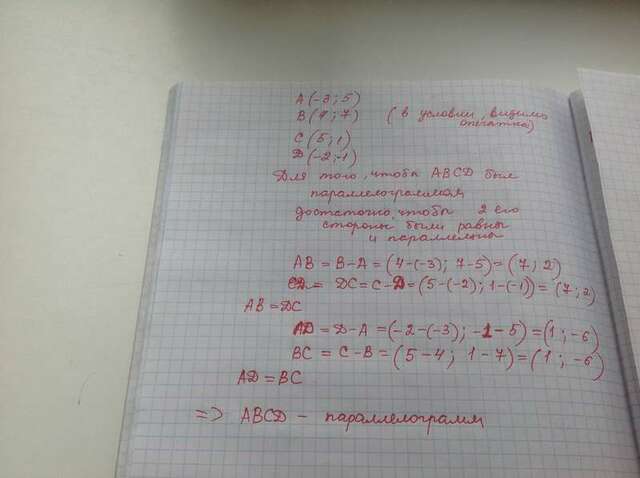 A(-3; 5)
B(4; 7) (в условии, видимо опечатка)
C(5; 1)
D(-2; -1)
Для того, чтобы ABCD был
параллелограммом,
достаточно, чтобы 2 его
стороны были равны
и параллельны
AB = B-A = (4-(-3); 7-5) = (7; 2)
DC = C-D = (5-(-2); 1-(-1)) = (7; 2)
AB = DC
AD = D-A = (-2-(-3); -1-5) = (1; -6)
BC = C-B = (5-4; 1-7) = (1; -6)
AD = BC
=> ABCD - параллелограмм